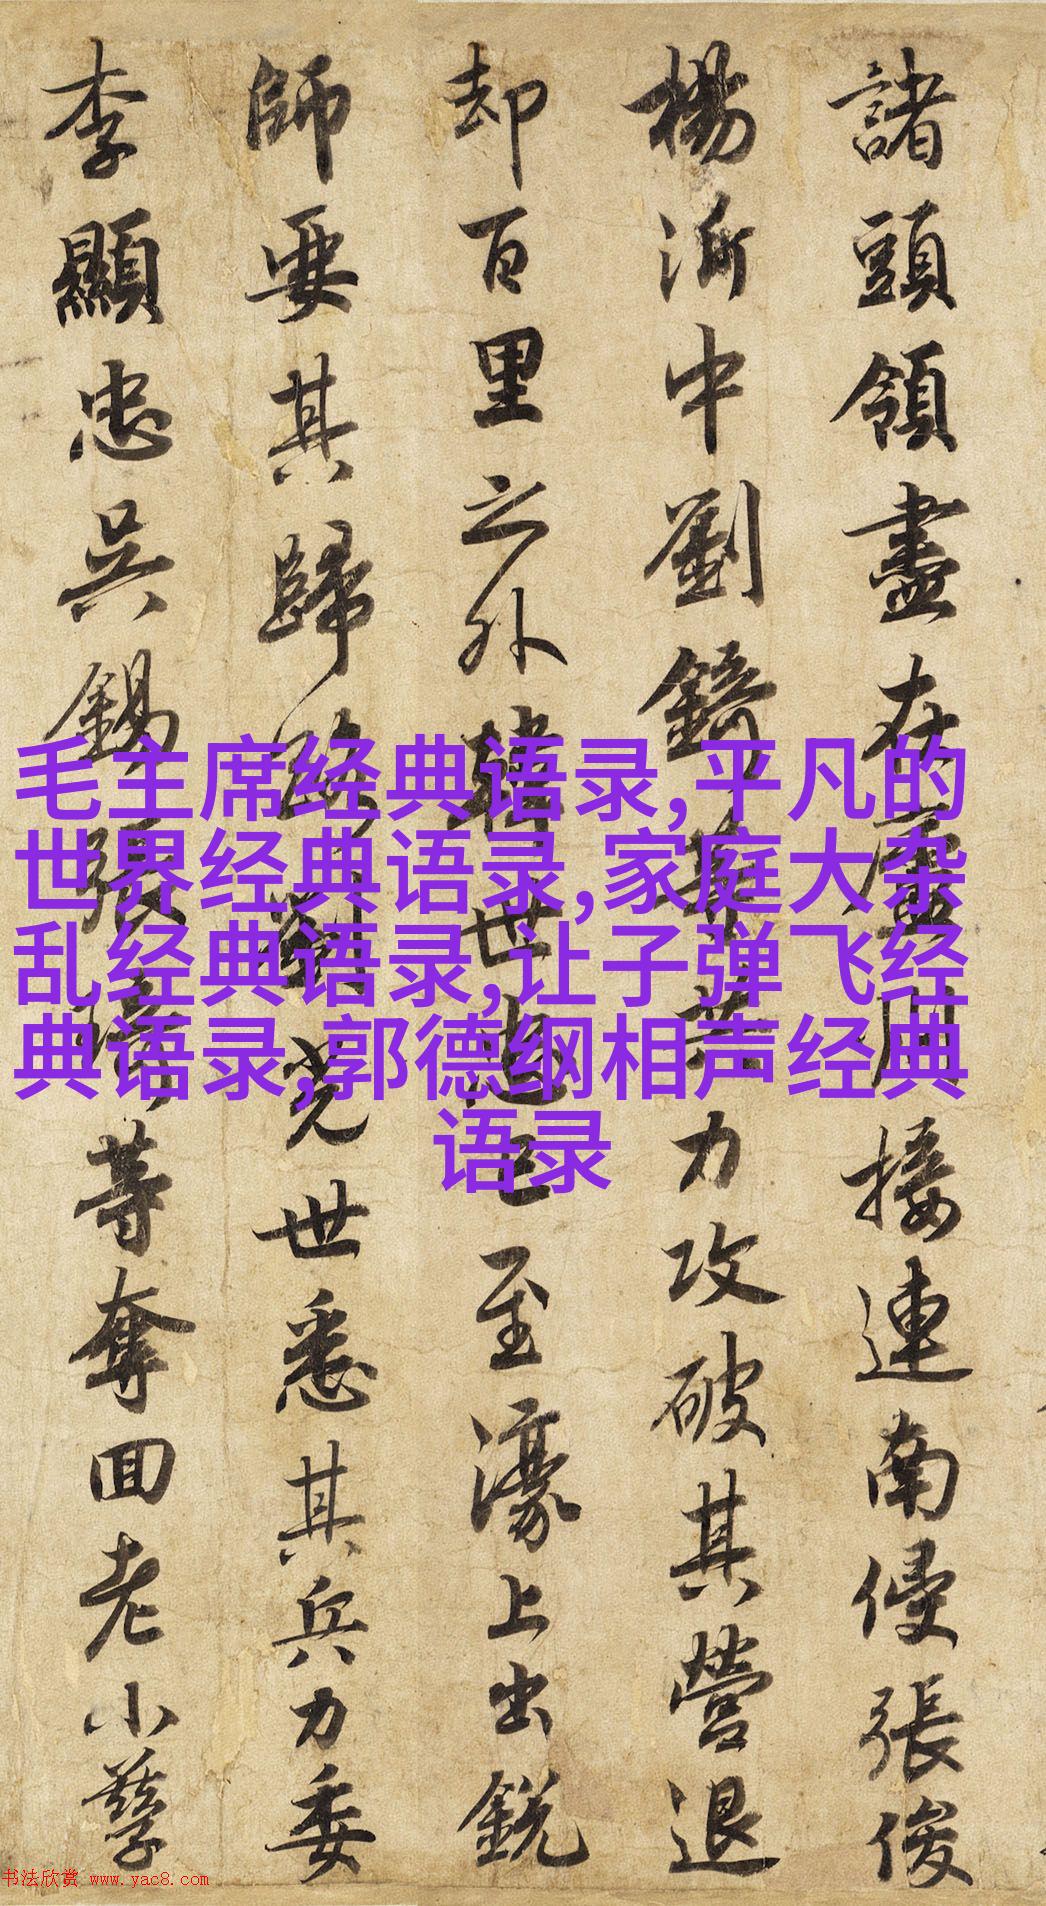 諸頭領盡在廬州接連南侵張俊
楊沂中劉錡等共力攻破其營退
却百里之外韓世忠已至濠上出銳
師要其歸路劉光世悉其兵力委
李顯忠吳錫張琦等奪回老小孳
毛主席经典语录,平凡的
世界经典语录,家庭大杂
乱经典语录,让子弹飞经
典语录,郭德纲相声经典
语录
书法欣赏 www.yac8.com